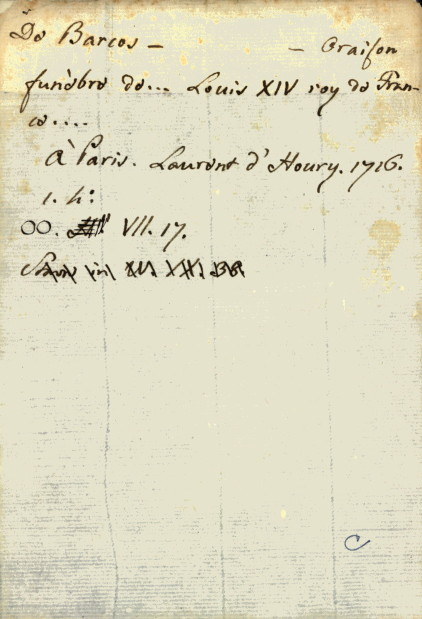 De Barcos – – Oraison
funèbre de... Louis XIV roy de Fran-
ce....
à Paris. Laurent d'Houry. 1716.
1. 4:
OO. VII. 17.